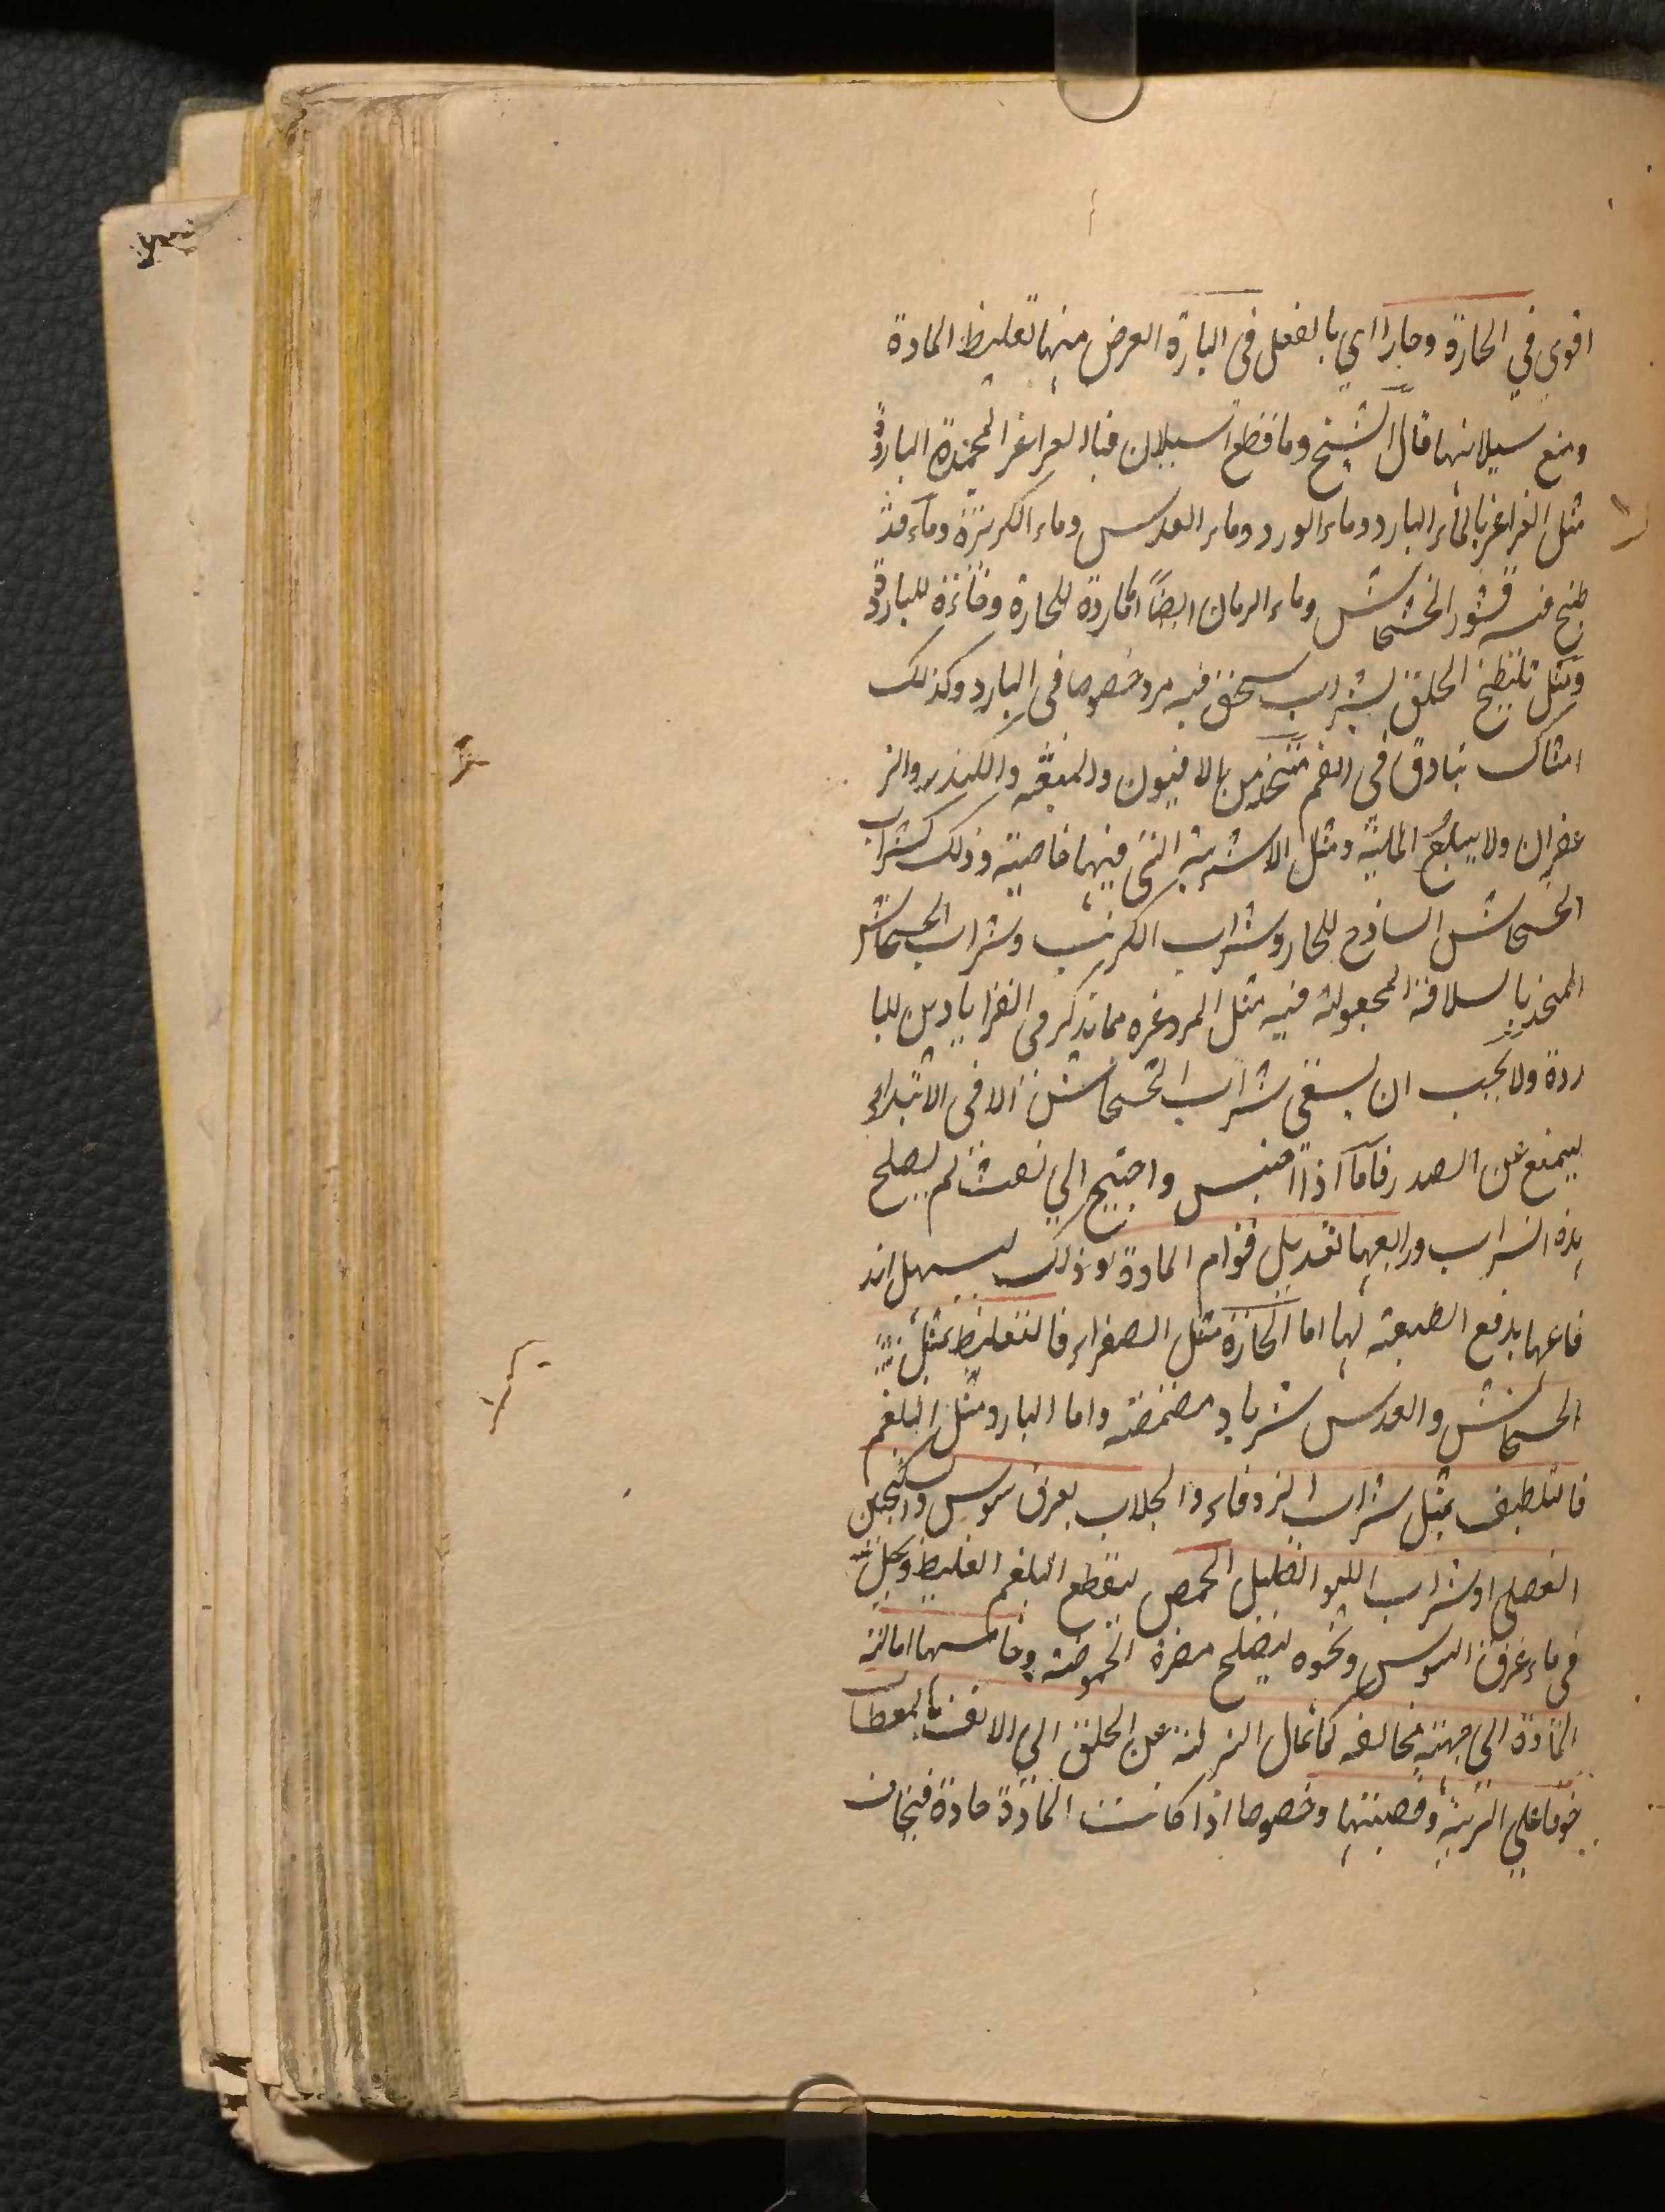 اقوي في الحارة وحارا اي بالفعل في الباردة الغرض منها تغليظ المادة
ومنع سيلانها قال الشيخ وما قطع السيلان فبالغراغر المجمدة الباردة
مثل الغراغر بالماء البارد وماء الورد وماء العدس وماء الكزبرة وماء قد
طبخ فيه قشور الخشخاش وماء الرمان ايضا الباردة للحارة وفاترة للباردة
ومثل تلطيخ الحلق بشراب سحق فيه مر خصوصا في البارد وكذلك
امساك بنادق في الفم متخذ من الافيون والميعة والكندر والز
عفران ولا يبلع المائية ومثل الاشربة التي فيها خاصية وذلك كشراب
الخشخاش الساذج للحار وشراب الكرنب وشراب الخشخاش
المتخذ بالسلافة المجعولة فيه مثل المر وغيره مما نذكر في القراباديس للبا
ردة ولا يجب ان يسقي شراب الخشخاش الا في الابتداء
ليمنع عن الصدر فاما اذا احتبس واحتيج الي نفث لم يصلح
هذه الشراب ورابعها تعديل قوام المادة وذلك ليسهل اند
فاعها بدفع الطبيعة لها اما الحارة مثل الصفراء فالتغليظ بمثل
الخشخاش والعدس شربا ومضمضة واما البارد مثل البلغم
فالتلطيف بمثل شراب الزوفاء والجلاب بعرق سوس والسكنجبين
العنصلي او شراب الليمو القليل الحمض ليقطع البلغم الغليظ ويجلي
في ماء عرق السوس ونحوه ليصلح مضرة الحموضة وخامسها امالة
المادة الي جهة مخالفه كما تمال النزلة عن الحلق الي الانف بالمعطسات
خوفا علي الرية وقصبتها وخصوصا اذا كانت المادة حادة فيخاف